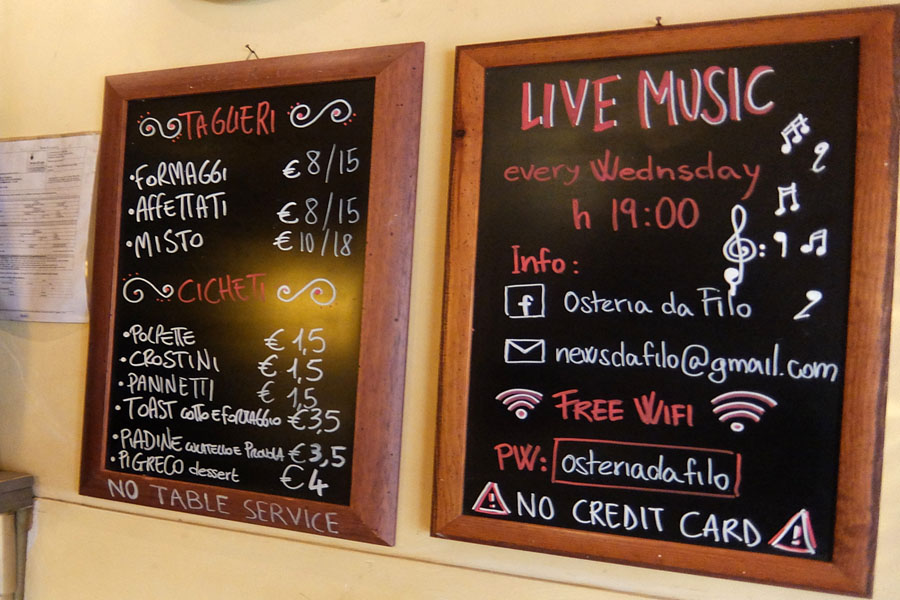 TAGLIERI
•FORMAGGI € 8/15
•AFFETTATI € 8/15
•MISTO € 10/18
CICHETI
•POLPETTE € 1,5
•CROSTINI € 1,5
•PANINETTI € 1,5
•TOAST COTTO E FORMAGGIO €3,5
•PIADINE CULATELLO E PROVOLA €3,5
•PIGRECO dessert € 4
NO TABLE SERVICE
LIVE MUSIC
every Wednsday
h 19:00
Info:
f Osteria da Filo
newsdafilo@gmail.com
FREE WIFI
PW: osteriadafilo
! NO CREDIT CARD !